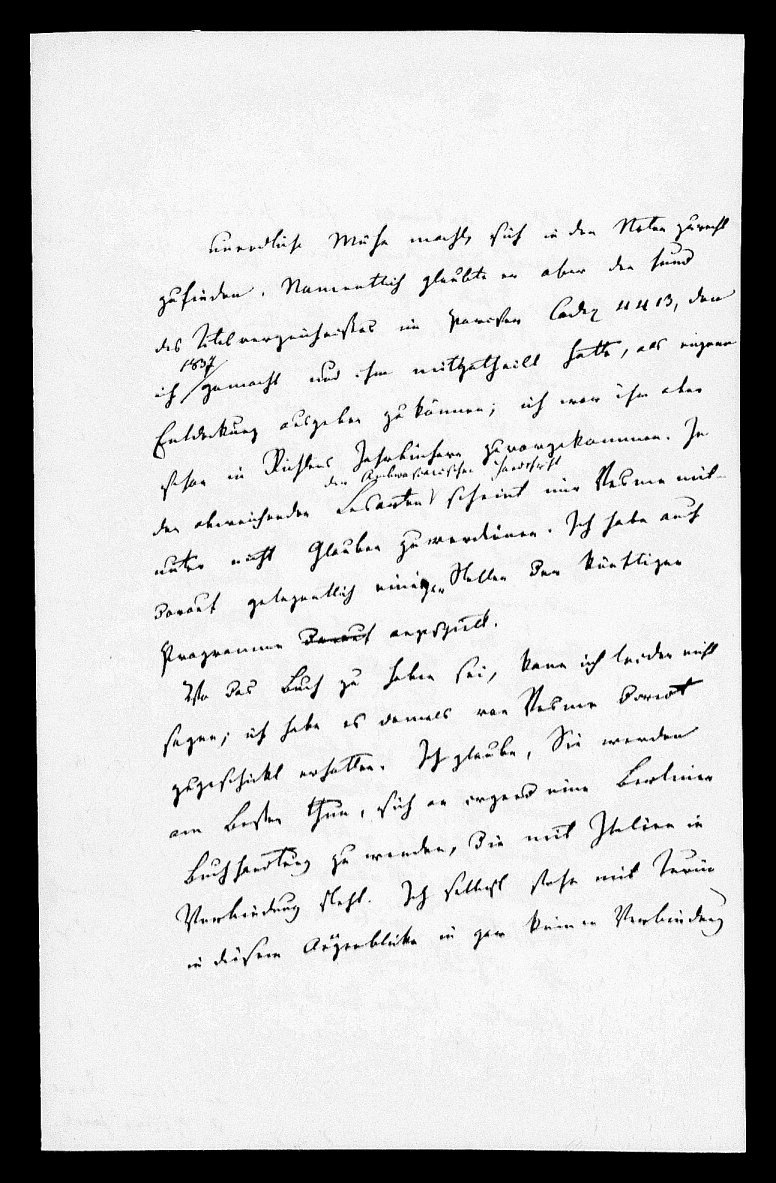 unendliche Mühe macht, sich in den Noten zurecht
zufinden. Namentlich glaubte er aber den Fund
des Titelverzeichnisses im Pariser Codex 4413, den
1837
ich gemacht und ihm mitgetheilt hatte, als eigene
Entdeckung ausgeben zu können; ich war ihm aber
schon in Richters Jahrbüchern zuvorgekommen. In
der Ambrosianischen Handschrift
den abweichenden Lesarten scheint mir Vesme mit-
unter nicht Glauben zu verdienen. Ich habe auch
darauf gelegentlich einigen Stellen des künftigen
Programms darauf angespielt.
Wo das Buch zu haben sei, kann ich leider nicht
sagen; ich habe es damals von Vesme direct
zugeschickt erhalten. Ich glaube, Sie werden
am Besten thun, sich an irgend eine Berliner
Buchhandlung zu wenden, die mit Italien in
Verbindung steht. Ich selbst stehe mit Turin
in diesem Augenblicke in gar keiner Verbindung